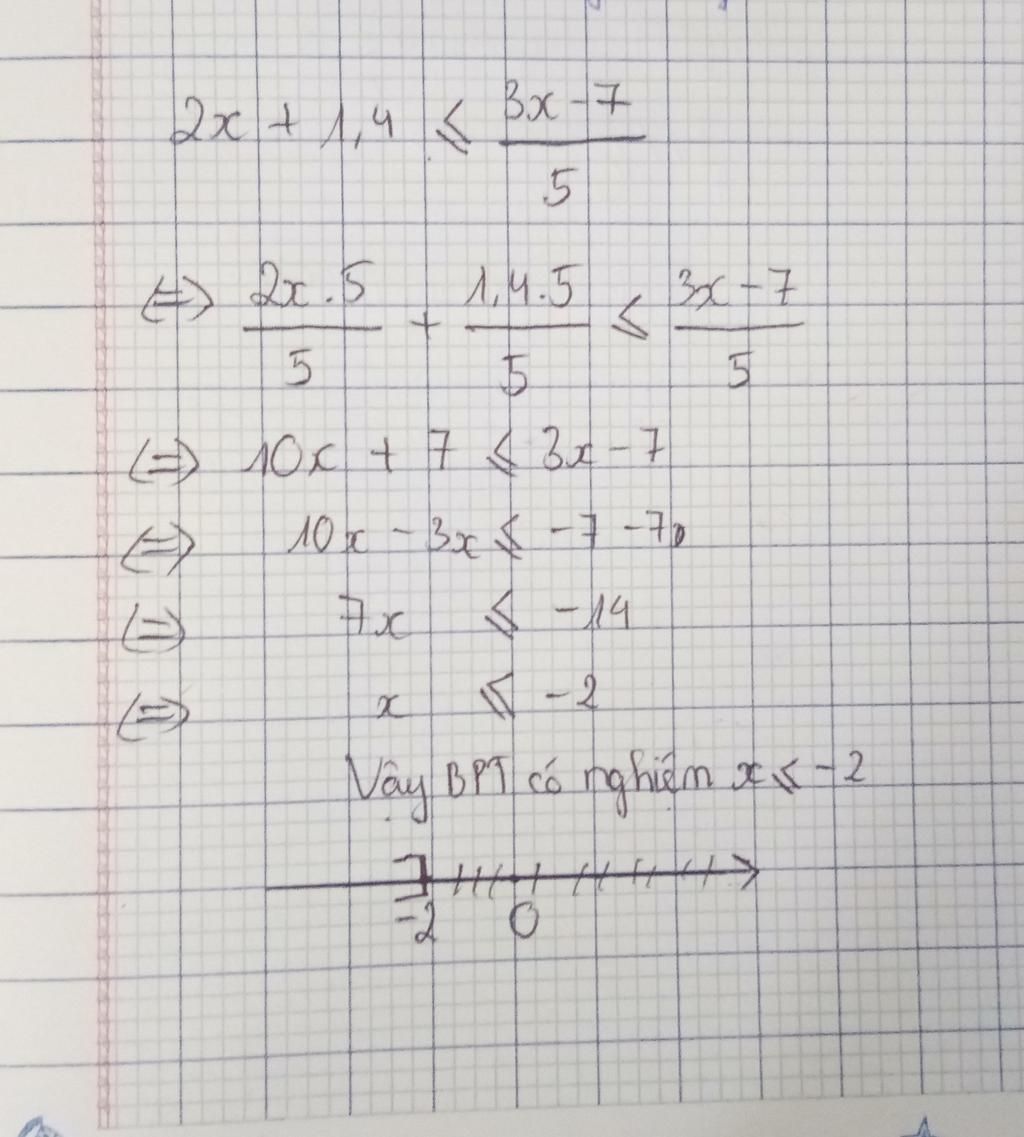 2x + 1,4 ⩽ (3x - 7)/5
(=) (2x.5)/5 + (1,4.5)/5 ⩽ (3x - 7)/5
(=) 10x + 7 ⩽ 3x - 7
(=) 10x - 3x ⩽ -7 - 7
(=) 7x ⩽ -14
(=) x ⩽ -2
Vậy BPT có nghiệm x ⩽ -2
-2 0